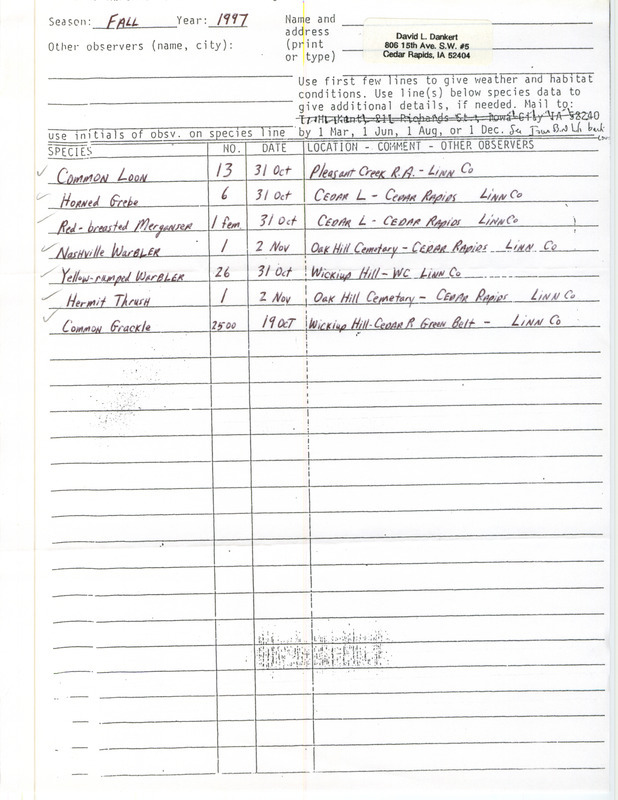 Season: FALL Year: 1997 Name and
address
(print
or type)
David L. Dankert
806 15th Ave. S.W. #5
Cedar Rapids, IA 52404
Other observers (name, city):
Use first few lines to give weather and habitat
conditions. Use line(s) below species data to
give additional details, if needed. Mail to:
T. H. Kent, 211 Richards St., Iowa City IA 52240
use initials of obsv. on species line by 1 Mar, 1 Jun, 1 Aug, or 1 Dec. See Iowa Bird Life back
SPECIES NO. DATE LOCATION - COMMENT - OTHER OBSERVERS
Common Loon 13 31 Oct Pleasant Creek R.A. - Linn Co
Horned Grebe 6 31 Oct Cedar L - Cedar Rapids Linn Co
Red-breasted Merganser 1 fem. 31 Oct Cedar L - Cedar Rapids Linn Co
Nashville Warbler 1 2 Nov Oak Hill Cemetary - Cedar Rapids Linn Co
Yellow-rumped Warbler 26 31 Oct Wickiup Hill - WC Linn Co
Hermit Thrush 1 2 Nov Oak Hill Cemetary - Cedar Rapids Linn Co
Common Grackle 2500 19 Oct Wickiup Hill-Cedar R Green Belt - Linn Co